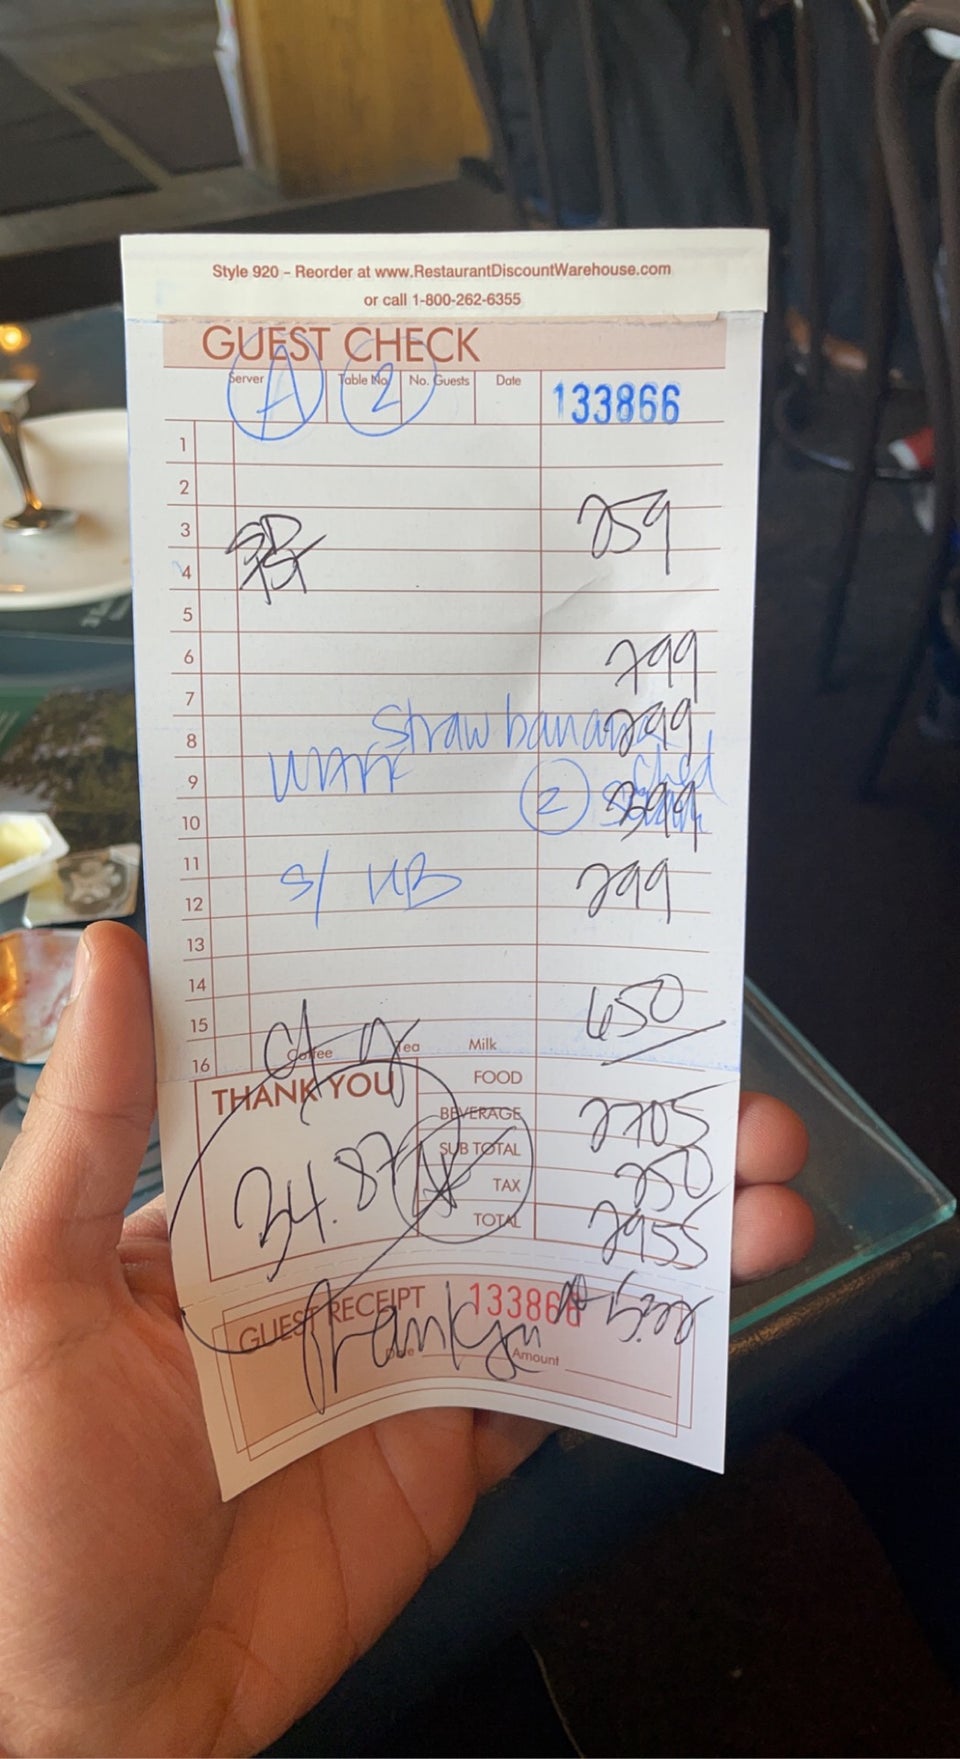 Style 920 – Reorder at www.RestaurantDiscountWarehouse.com
or call 1-800-262-6355
GUEST CHECK
Server Table No. No. Guests Date
A 2 133866
1
2
3 259
4
5
6 799
7
8 straw banana 299
9 WAff
10 2 399
11
12 s/ HB 299
13
14
15 650
16 Coffee Tea Milk
THANK YOU FOOD
BEVERAGE 2705
SUB TOTAL
34.87 TAX 250
TOTAL 2955
GUEST RECEIPT 133866 5.32
Thank you
Date Amount